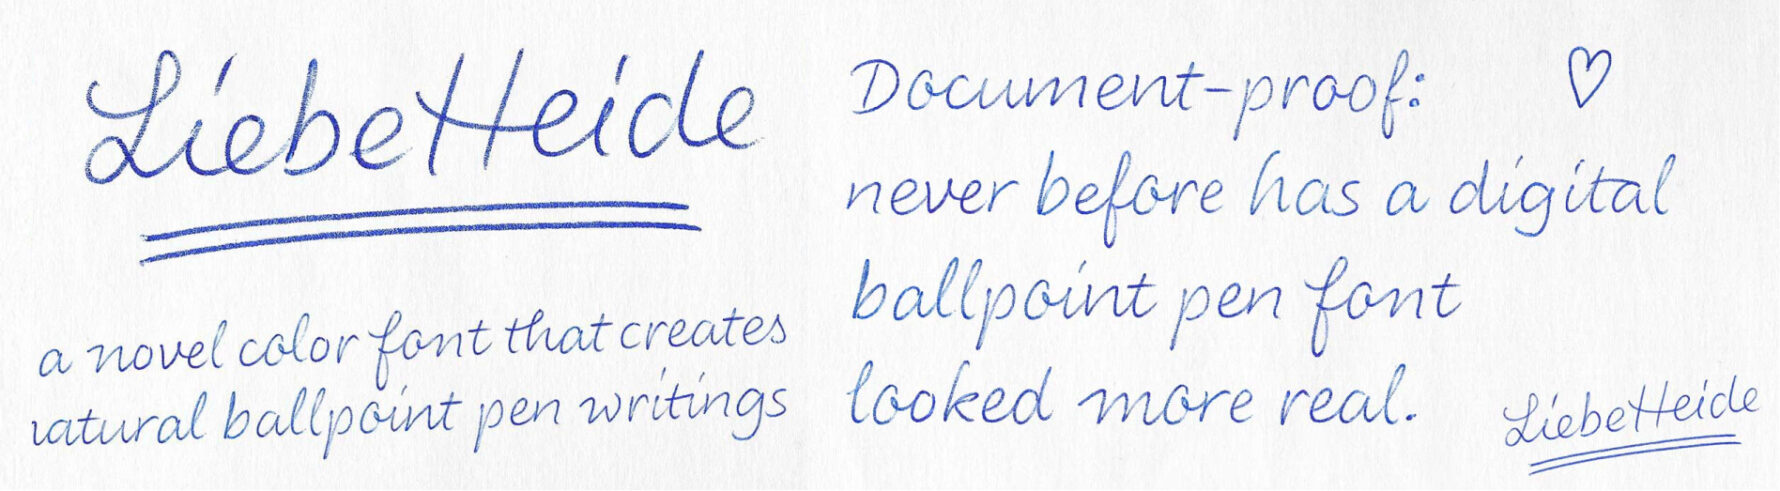 LiebeHeide
a novel color font that creates
natural ballpoint pen writings
Document-proof:
never before has a digital
ballpoint pen font
looked more real.
LiebeHeide